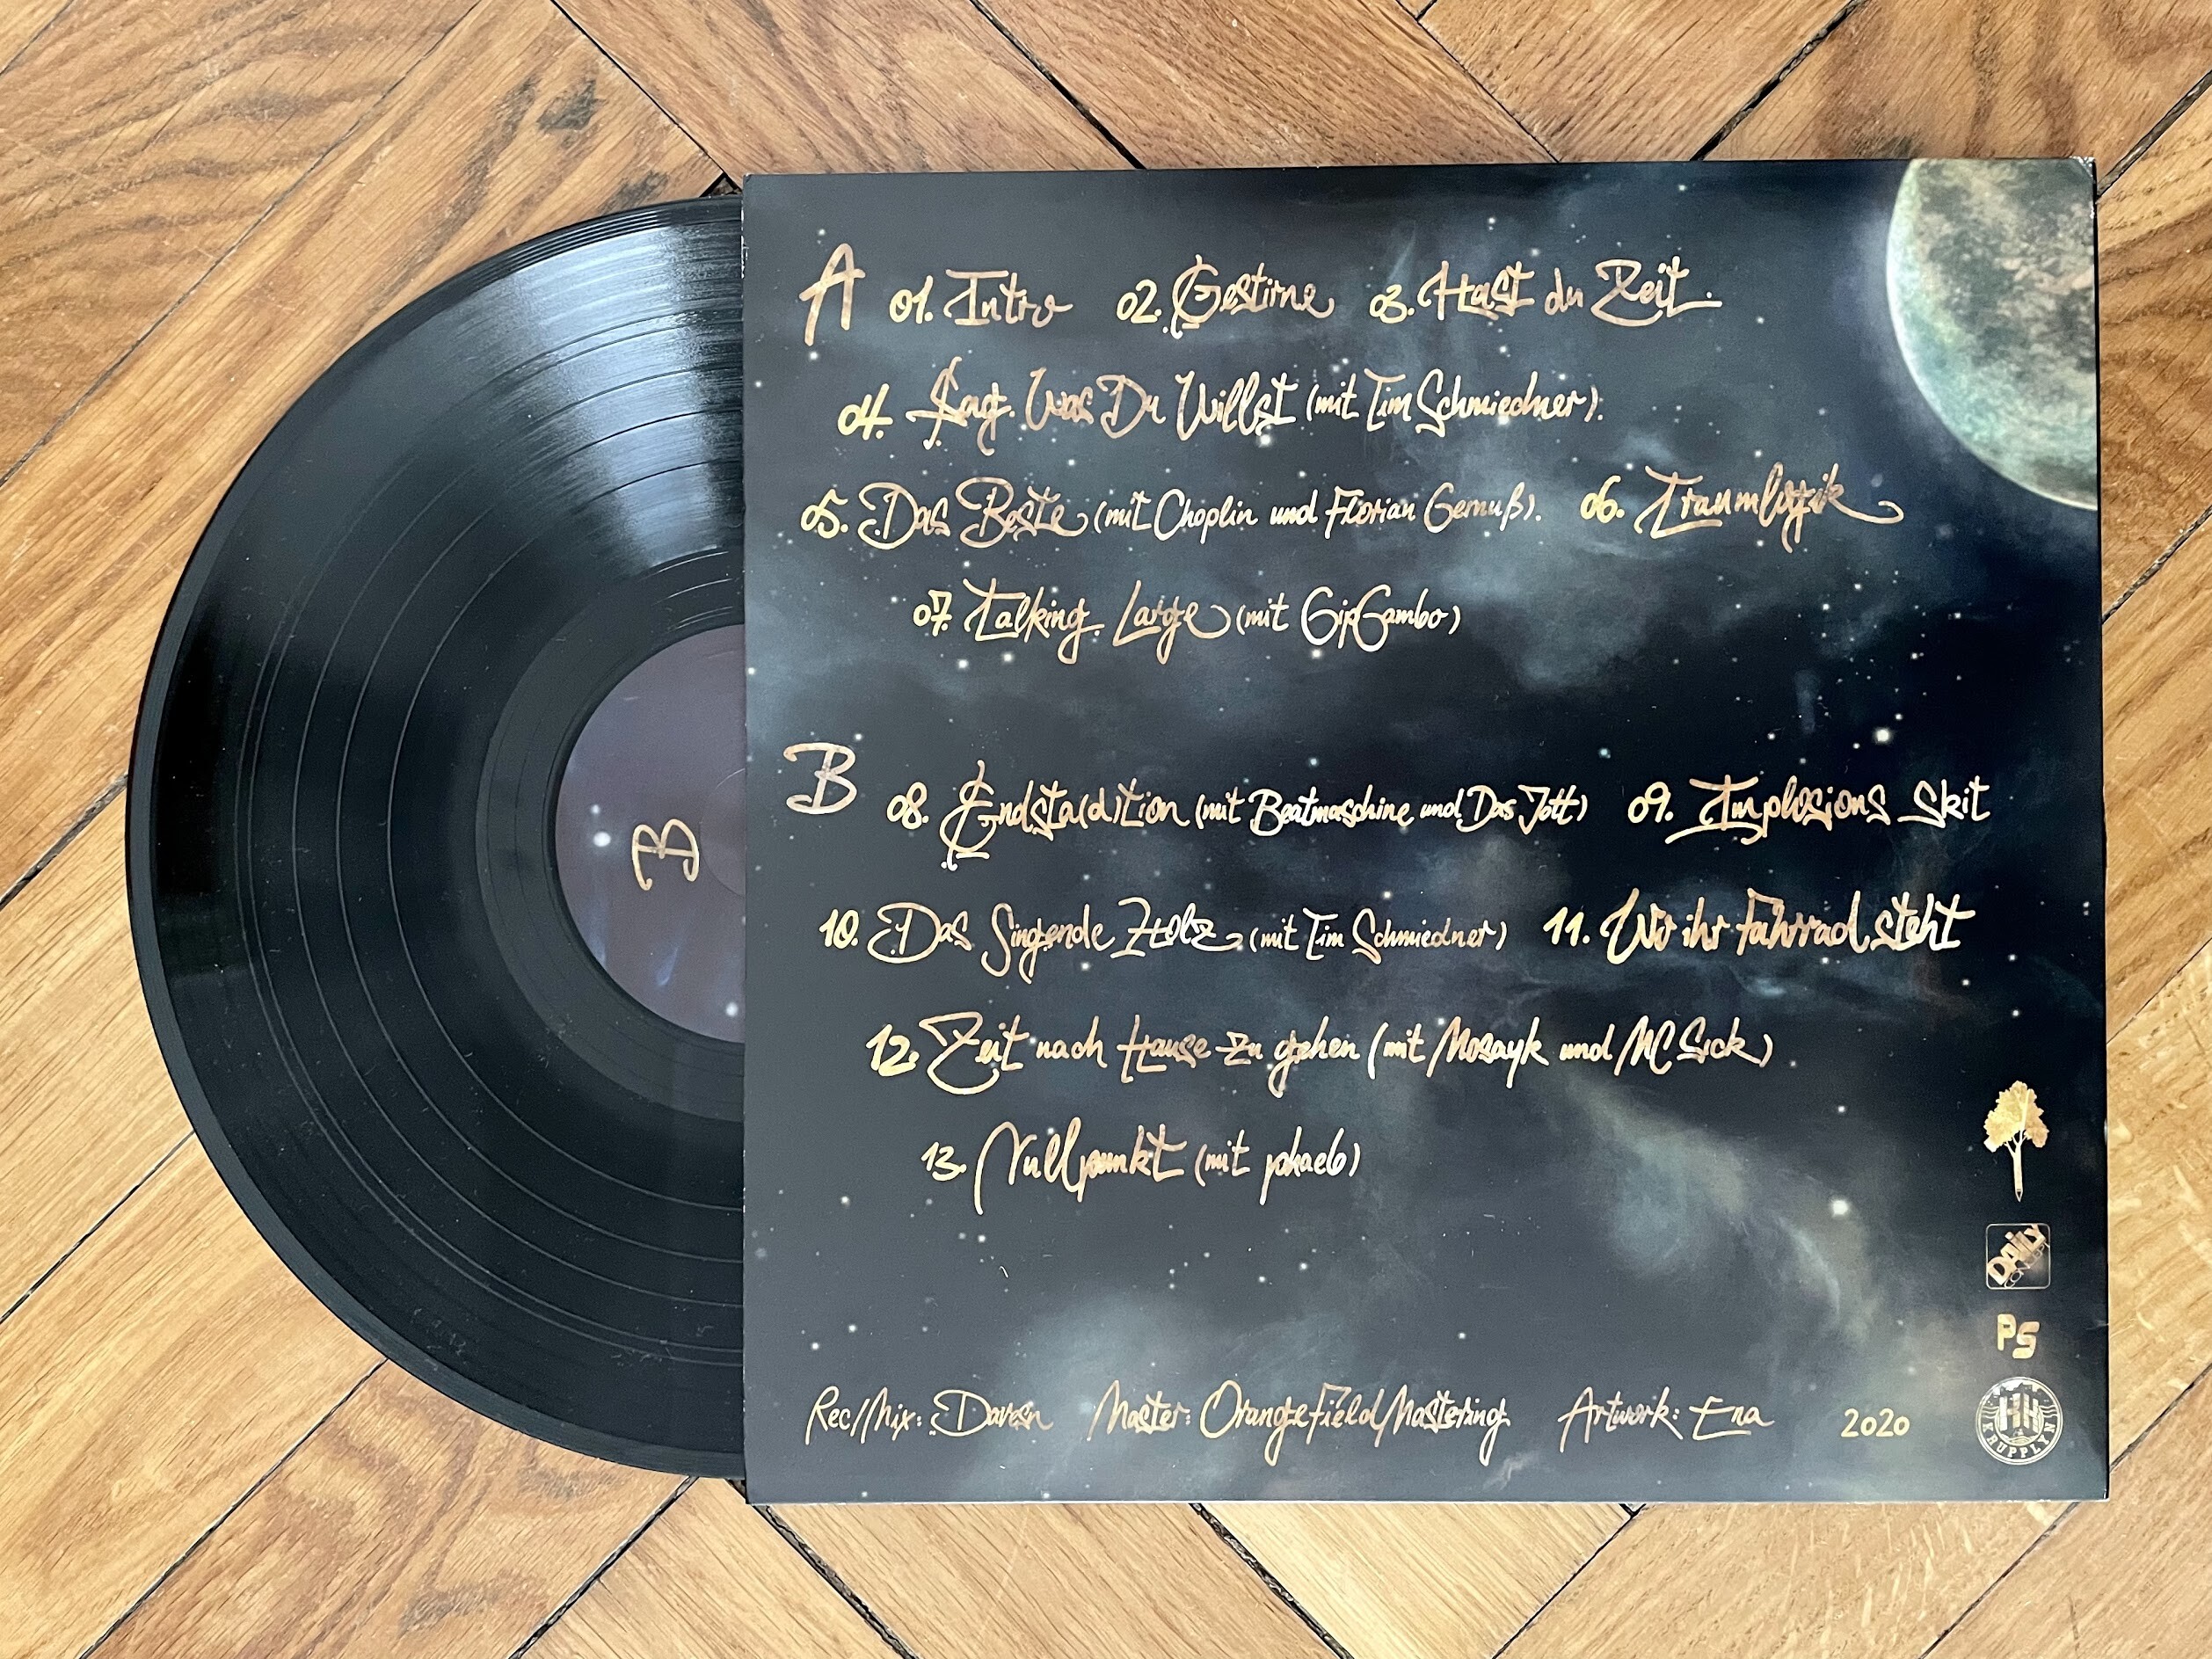 A 01. Intro 02. Gestirne 03. Hast du Zeit
04. Sag Was Du Willst (mit Tim Schmiedner)
05. Das Beste (mit Choplin und Florian Gernuß). 06. Traumlogik
07. Talking Large (mit GipGambo)
B 08. Endsta(d)tion (mit Beatmaschine und Das Jott) 09. Implosions Skit
B
10. Das Singende Holz (mit Tim Schmiedner) 11. Wo ihr Fahrrad steht
12. Zeit nach Hause zu gehen (mit Mosayk und MC Sick)
13. Nullpunkt (mit phaeb)
DAILY CONCEPT
PS
HH KRUPPLYN
Rec/Mix: Master: OrangeFieldMastering Artwork: Ena 2020